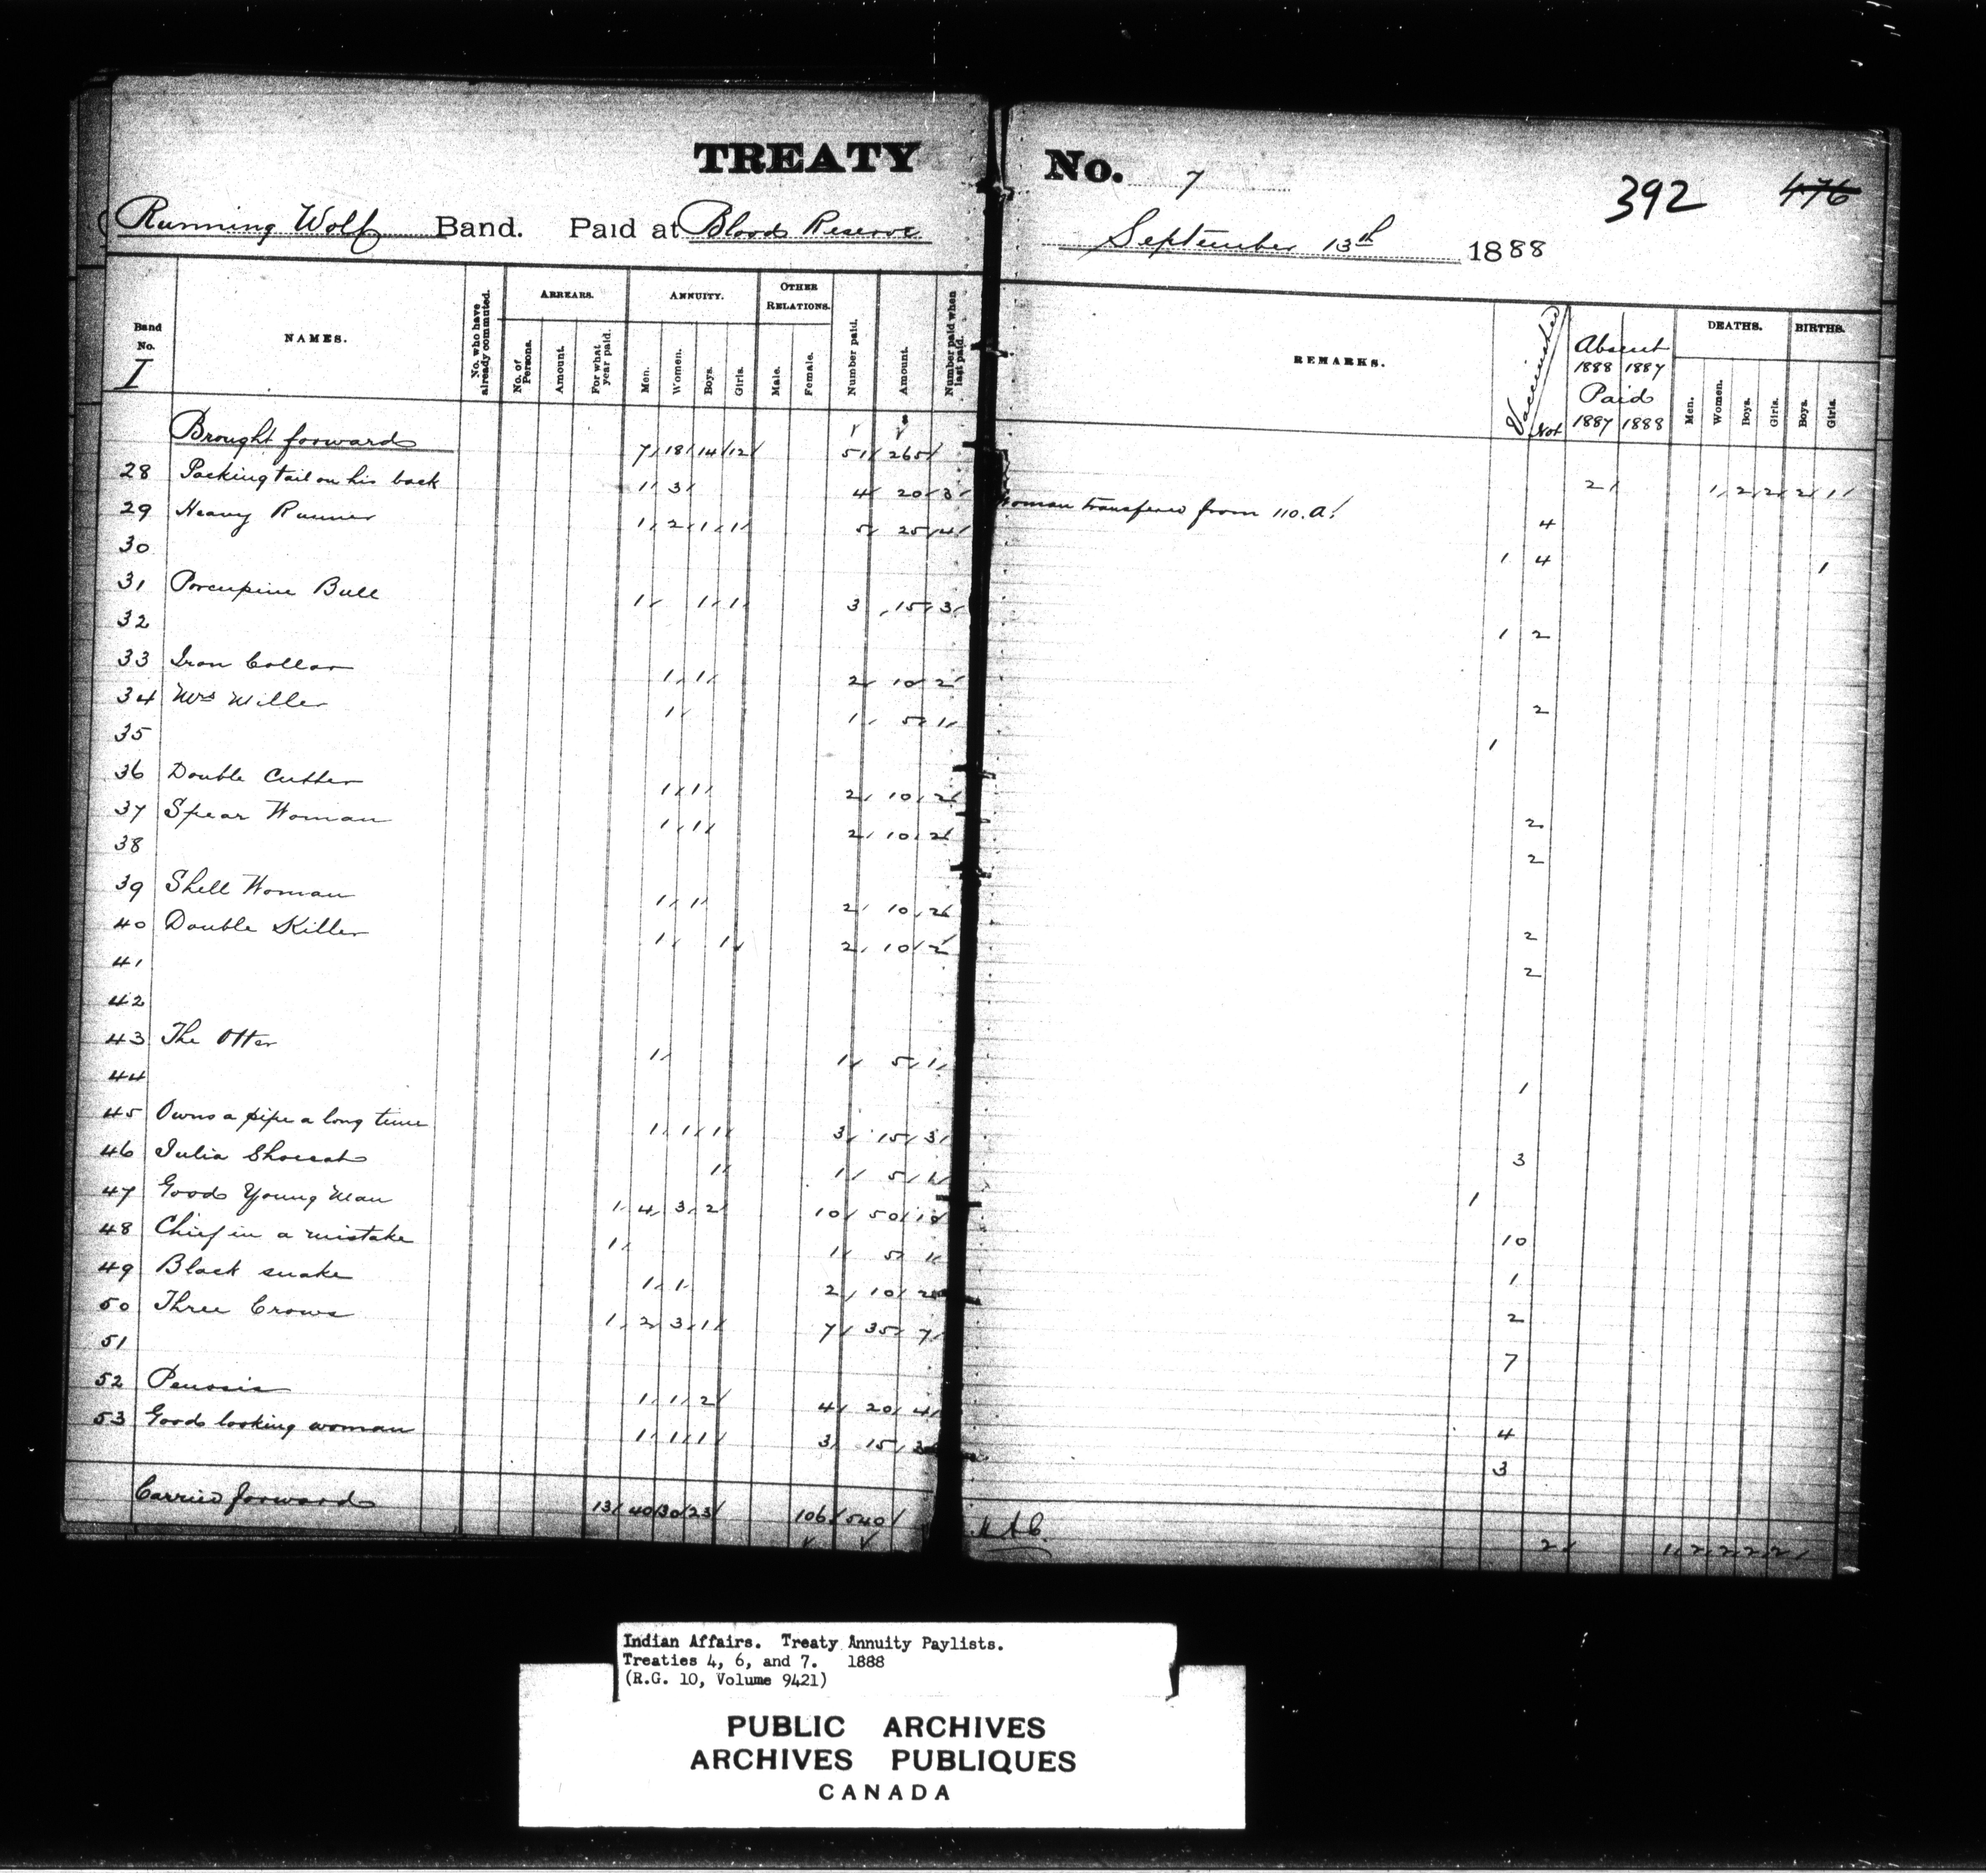 TREATY No. 7
392 476
Running Wolf Band. Paid at Blood Reserve September 13th 1888
Band No. I NAMES. No. who have already commuted. ARREARS. No. of Persons. Amount. For what year paid. ANNUITY. Men. Women. Boys. Girls. OTHER RELATIONS. Male. Female. Number paid. Amount. Number paid when last paid. REMARKS. Vaccinated Not Absent 1888 Paid 1887 1887 1888 DEATHS. Men. Women. Boys. Girls. BIRTHS. Boys. Girls.
Brought forward 7 18 14 12 51 265 2 1 2 2 2 1
28 Packing tail on his back 1 3 4 20 3 Woman transfered from 110.A. 4
29 Heavy Runner 1 2 1 1 5 25 4 1 4 1
30
31 Porcupine Bull 1 1 1 3 15 3 1 2
32
33 Iron Collar 1 1 2 10 2 2
34 Mrs Miller 1 1 5 1 1
35
36 Double Cutter 1 1 2 10 2 2
37 Spear Woman 1 1 2 10 2 2
38
39 Shell Woman 1 1 2 10 2 2
40 Double Killer 1 1 2 10 2 2
41
42
43 The Otter 1 1 5 1 1
44
45 Owns a pipe a long time 1 1 1 3 15 3 3
46 Julia 1 1 5 1 1
47 Good Young Man 1 4 3 2 10 50 10 10
48 Chief in a mistake 1 1 5 1 1
49 Black snake 1 1 2 10 2 2
50 Three Crows 1 2 3 1 7 35 7 7
51
52 1 1 2 4 20 4 4
53 Good looking woman 1 1 1 3 15 3 3
Carried forward 13 40 30 23 106 540 2 1 2 2 2 2
Indian Affairs. Treaty Annuity Paylists.
Treaties 4, 6, and 7. 1888
(R.G. 10, Volume 9421)
PUBLIC ARCHIVES
ARCHIVES PUBLIQUES
CANADA